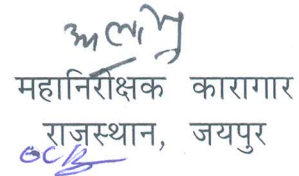 महानिरीक्षक कारागार
राजस्थान, जयपुर